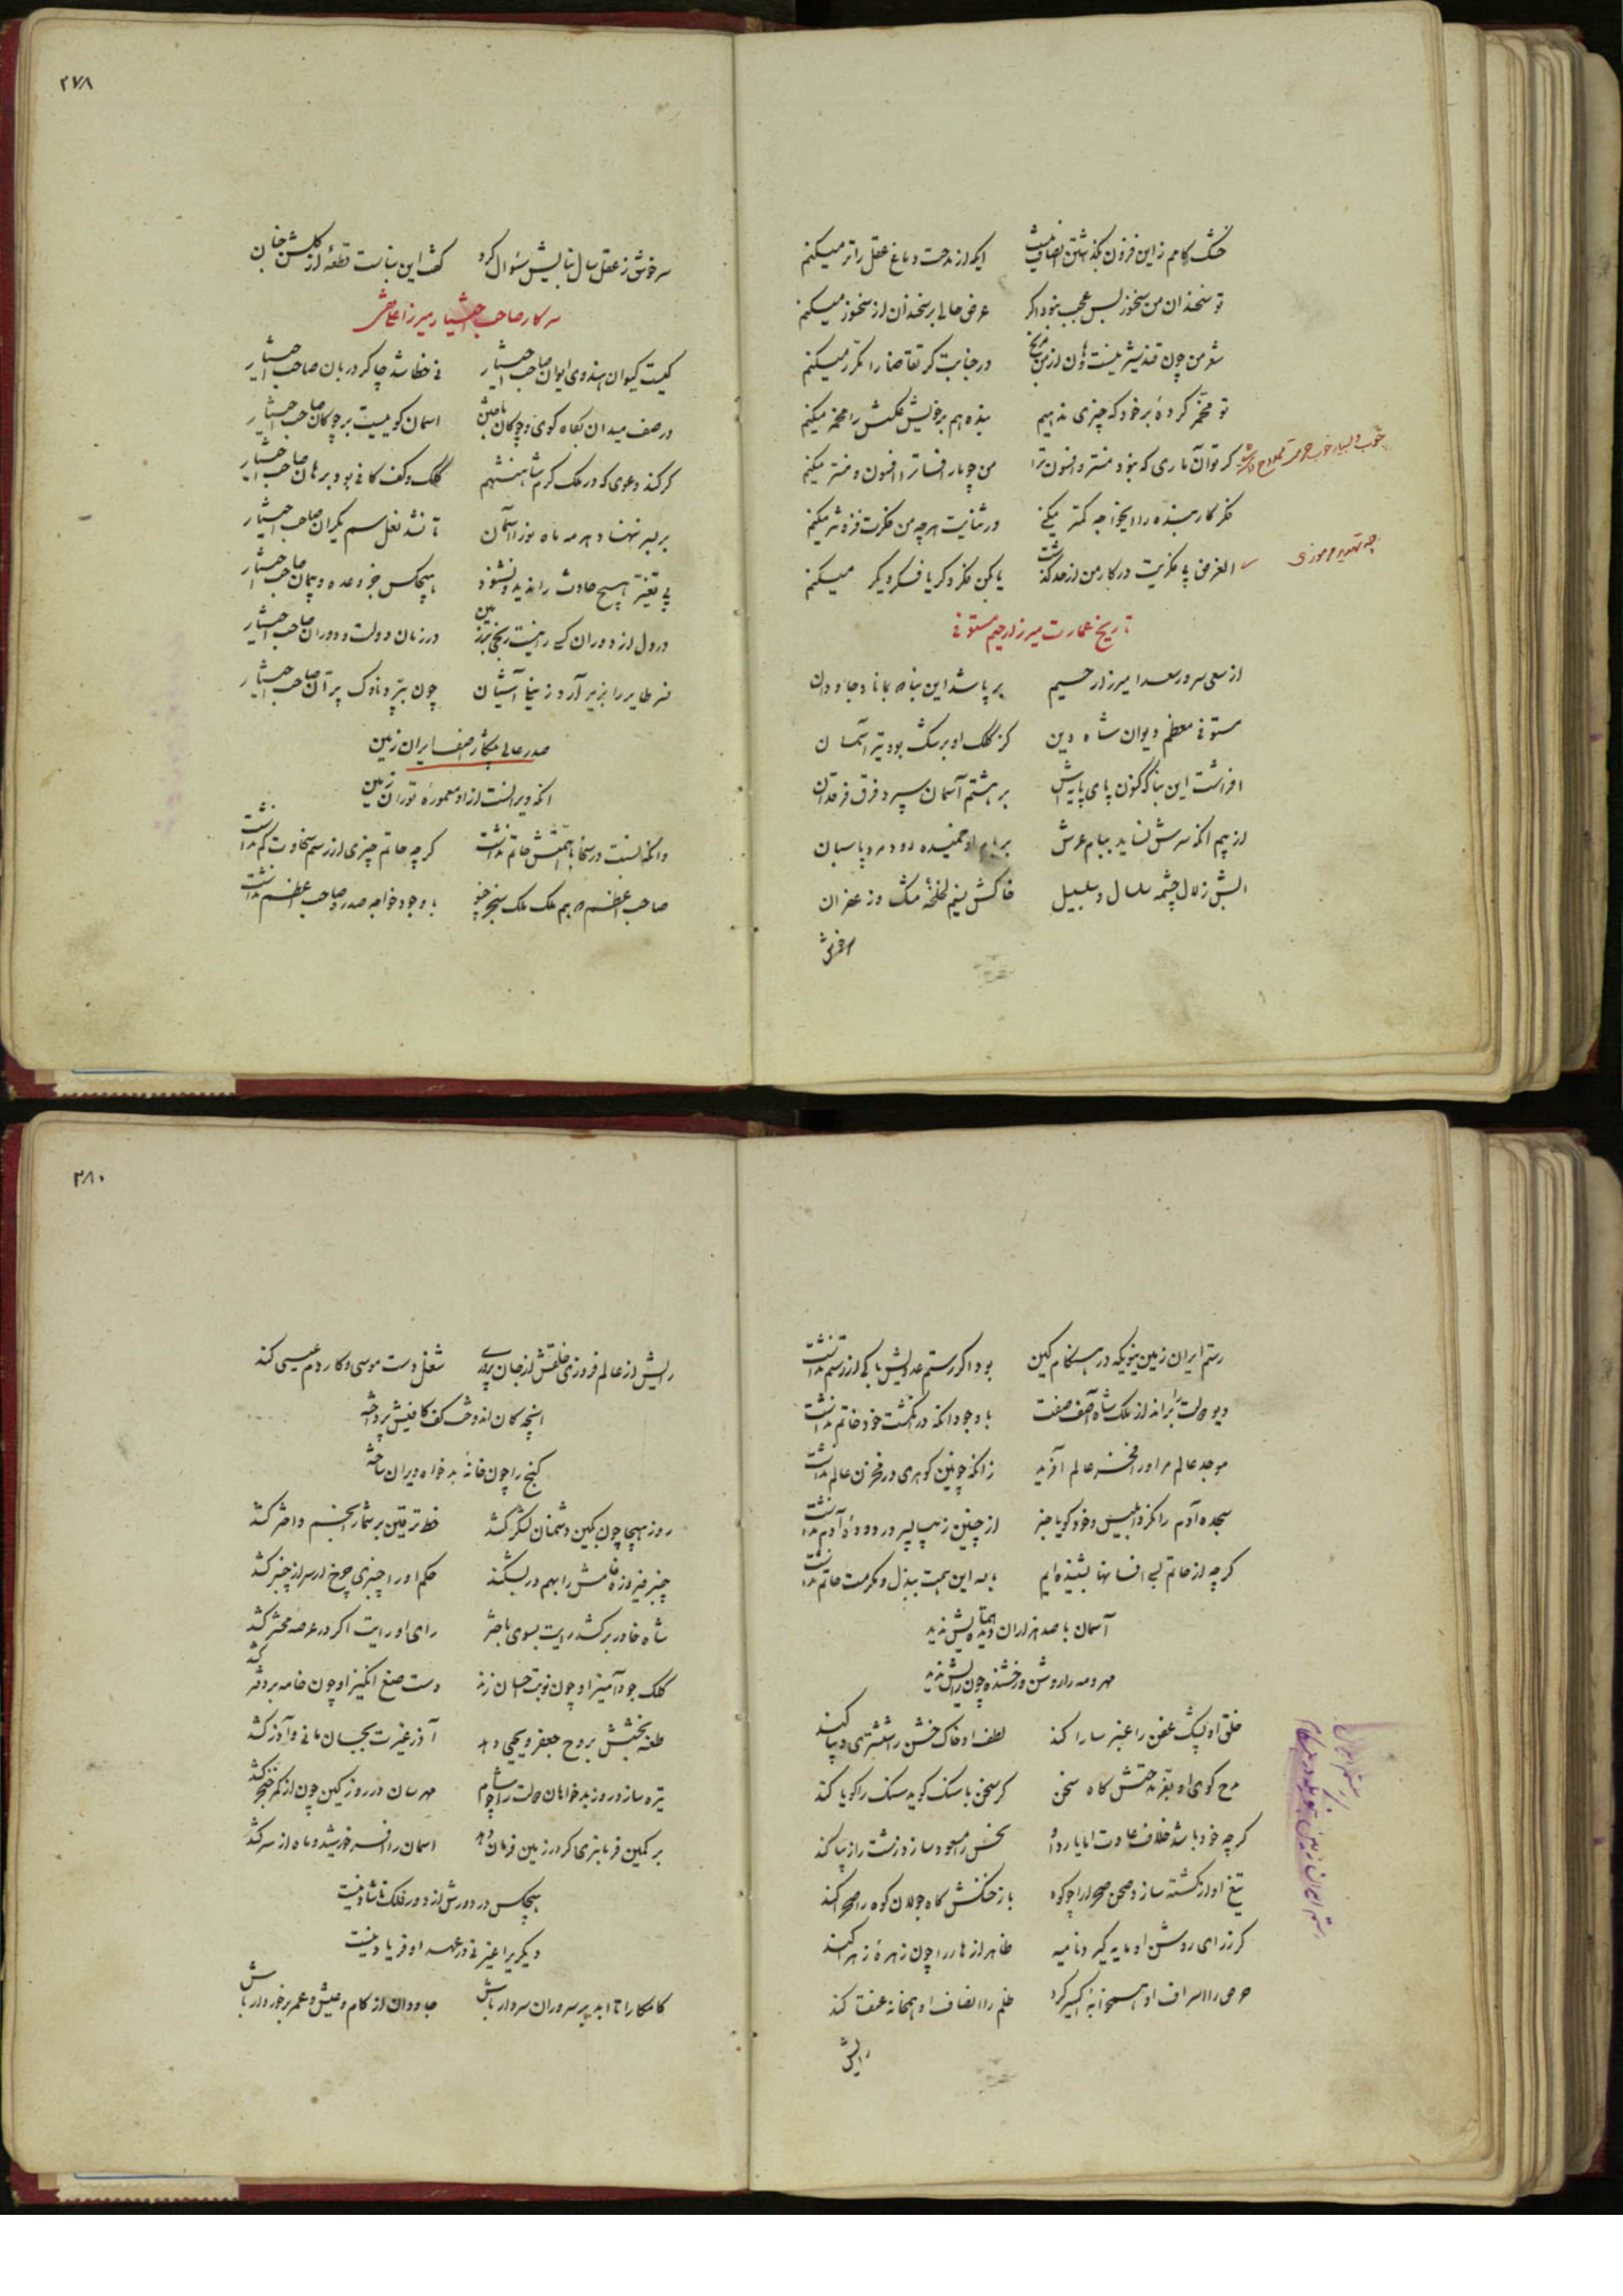 خشک کامم زاین فزون بگذاشتن انصاف نیست ایکه از مدحت دماغ عقل را تر میکنم
تو سخندان من سخنور بس عجب نبود اگر عرض حالی بر سخندان از سخنور میکنم
شعر من چون قند شیرینست در جنابت گر تقاضا را مکرر میکنم
تو مخمر کردهٔ بر خود که چیزی ندهیم بنده هم بر خویش عکسش را مخمر میکنم
گر توآن ماری که نبود منتر و افسون ترا من چو مار افسا ترا افسون و منتر میکنم
فکر کار بنده را ایخواجه کمتر میکنی در ثنایت هرچه من فکرت فزونتر میکنم
الغرض بی فکریت در کار من از حد گذشت یا بکن فکر دگر یا فکر دیگر میکنم
تاریخ عمارت میرزا رحیم مستوفی
از سعی سرور سعدا میرزا رحیم بر پا شد این بنا که بماناد جاودان
مستوفی معظم دیوان شاه دین کز کلک او برشک بود تیر آسمان
افراشت این بنا که کنون پای پایه‌اش بر هشتم آسمان سپرد فرق فرقدان
از بیم آنکه سرش نساید ببام عرش بر بام او خمیده رود مرد پاسبان
آبش زلال چشمه سلسال و سلسبیل خاکش نسیم لخلخهٔ مشک و زعفران
سرخوش
۲۷۸
سرخوش ز عقل سال بنایش سئوال کرد گفت این بناست قطعهٔ از گلشن جنان
سرکار صاحب اختیار میرزا
کیست کیوان هندوی ایوان صاحب اختیار نی خطا شد چاکر دربان صاحب اختیار
در صف میدان بگاه گوی و چوگان باختن آسمان گوییست بر چوگان صاحب اختیار
گر کند دعوی که در ملک کرم شاهنشهم کلک و کف کافی بود برهان صاحب اختیار
بر سر ننهاد هر مه ماه نو را آسمان تا نشد نعل سم یکران صاحب اختیار
بی تغیر هیچ حادث را ندید و نشنود هیچکس جز وعده و پیمان صاحب اختیار
در دل از دوران کسی را نیست رنجی در زمان دولت و دوران صاحب اختیار
نسر طایر را بزیر آرد ز مینا آشیان چون بپرد ناوک پران صاحب اختیار
صدر عالی ایران زمین
آنکه ویرانست از او معمورهٔ توران زمین
وانکه نسبت در سخا با همتش حاتم نداشت گر چه حاتم چیزی از رسم سخاوت کم نداشت
صاحب اعظم که جم ملک سنجر با وجود خواجه صدر و صاحب اعظم نداشت
رستم ایران زمین نیویکه در هنگام کین بود اگر رستم عدیلش باکی از رستم نداشت
دیو دولت را براند از ملک شاه آصف صفت با وجود آنکه در انگشت خود خاتم نداشت
موجد عالم مر او را مفخر عالم آفرید زانکه چونین گوهری در مخزن عالم نداشت
سجده آدم را نکرد ابلیس و خود گویا خبر از چنین زیبا پسر در دودهٔ آدم نداشت
گر چه از حاتم بسی افسانها بشنیده‌ایم با که این همت ببذل و مکرمت حاتم نداشت
آسمان با صد هزاران دیده همتایش ندید
مهر و مه را روشن و رخشنده چون رایش ندید
خلق او پشک عفن را عنبر سارا کند لطف او خاک خشن را ششتری دیبا کند
مدح گوی او بتقریر مدحتش گاه سخن گر سخن با سنگ گوید سنگ را گویا کند
گر چه خود باشد خلاف عادت اما یاد او نحس را مسعود سازد زشت را زیبا کند
تیغ او از کشته سازد صحن صحرا را چو کوه باز خنگش گاه جولان کوه را صحرا کند
گر ز رای روشن او مایه گیرد نامیه ظاهر از خارا چون زهرهٔ زهرا کند
حرص را اسراف او همخوابهٔ اکسیر کرد ظلم را انصاف او همخانه عنقا کند
رایش
۲۸۰
رایش از عالم فروزی خلقش از جان پروری شغل دست موسی و کار دم عیسی کند
آنچه کان اندوخت کف کافیش پرداخته
گنج را چون خانهٔ بدخواه ویران ساخته
روز هیجا چون بکین دشمنان لشکر کشد خط ترقین بر شمار انجم و اختر کشد
چنبر فیروزه فامش را بهم در بشکند حکم او را چنبری چرخ ار سر از چنبر کشد
شاه خاور برکشد رایت بسوی باختر رای او رایت اگر در عرصه محشر کشد
کلک جود آمیز او چون نوبت احسان زند دست صنع انگیز او چون خامه بر دفتر کشد
طعنه بخشش بروح جعفر و یحیی دهد آذر غیرت بجسمان مانی و آذر کشد
تیره سازد روز بدخواهان دولت را چو شام مهرسان در روز کین چون از کمر خنجر کشد
بر کمین فرمانبری گر در زمین فرمان دهد آسمان را افسر خورشید و ماه از سر کشد
هیچکس در دورش از دور فلک ناشاد نیست
دیگر نی در عهد او فریاد نیست
کامکارا تا ابد بر سروران سردار باش جاودان از کام و عیش و عمر برخوردار باش